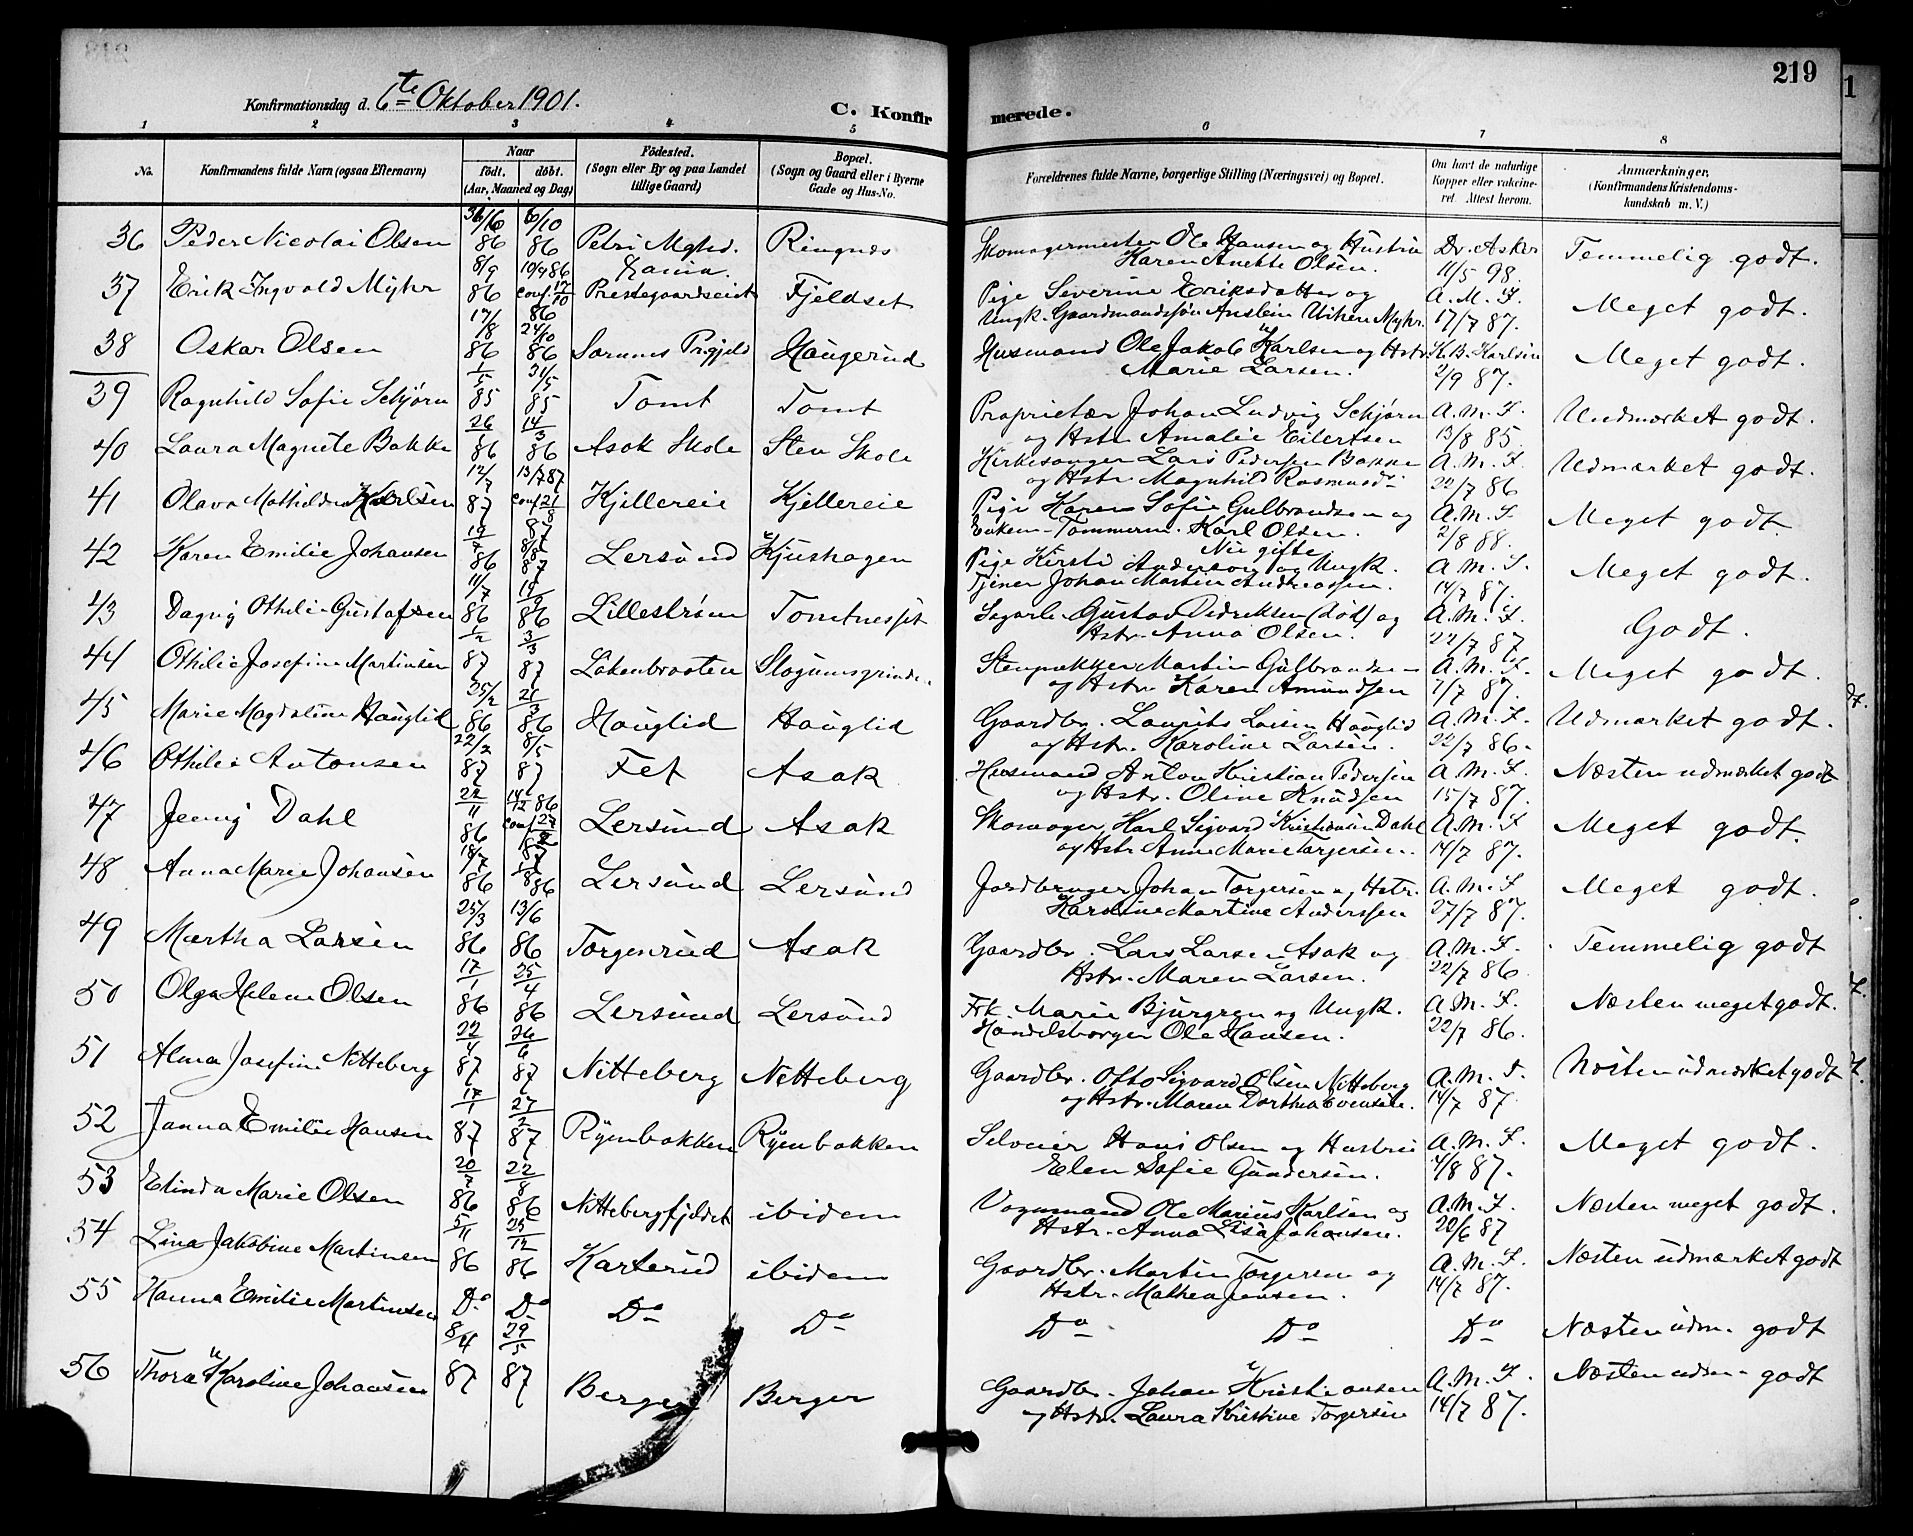 219
Konfirmationsdag d. 6te Oktober 1901.
C. Konfirmerede.
1 2 3 4 5 6 7 8
No.
Konfirmandens fulde Navn (ogsaa Efternavn)
Naar
født. døbt.
(Aar, Maaned og Dag)
Fødested.
(Sogn eller By og paa Landet
tillige Gaard)
Bopæl.
(Sogn og Gaard eller i Byerne
Gade og Hus-No.
Forældrenes fulde Navne, borgerlige Stilling (Næringsvei) og Bopæl.
Om havt de naturlige
Kopper eller vakcine-
ret. Attest herom.
Anmærkninger.
(Konfirmandens Kristendoms-
kundskab m. V.)
36 Peder Nicolai Olsen 86 6/10 86 Petri Mghd. Ringnes Skomagermester Ole Hansen og Hustru Dr. Asker Temmelig godt.
Karen Anette Olsen. 11/5 98.
37 Erik Ingvald Myhr 8/9 86 19/9 86 conf. 17/10 86 Prestegaardseiet Fjeldset Pige Severine Eriksdatter og A. M. F. Meget godt.
Ungk. Gaardmandssøn Anstein Myhr. 17/7 87.
38 Oskar Olsen 17/8 86 24/10 86 Sørums Prgjeld Haugerud Husmand Ole Jakob Karlsen og Hstr. K. B. Karlsen Meget godt.
Marie Larsen. 2/9 87.
39 Ragnhild Sofie Schjørn 1/5 85 31/5 85 Tomt Tomt Proprietær Johan Ludvig Schjørn A. M. F. Uudmærket godt.
og Hstr. Amalie Eilertsen 13/8 85.
40 Laura Magnete Bakke 86 14/3 86 Asak Skole Sten Skole Kirkesanger Lars Pedersen Bakke A. M. F. Udmærket godt.
og Hstr. Magnhild Rasmusd. 22/7 86
41 Olava Mathilde Karlsen 12/7 87 13/7 87 conf. 21/8 87 Kjillereie Kjellereie Pige Karen Sofie Gulbrandsen og A. M. F. Meget godt.
Enkem. Tømmerm. Karl Olsen. 2/8 88.
Nu gifte
42 Karen Emilie Johansen 86 87 Lersund Kjushagen Pige Kirsti Anderson og Ungk. A. M. F. Meget godt.
Tjener Johan Martin Andreassen. 14/7 87.
43 Dagny Othilie Gustafsen 11/7 86 86 Lillestrøm Tomtnesset Sagarb. Gustav Didriksen (Løk) og A. M. F. Godt.
Hstr. Anna Olsen. 22/7 87
44 Othilie Josefine Martinsen 1/2 87 3/3 87 Lakenbraaten Slogumsgrinden Stenpukker Martin Gulbrandsen A. M. F. Meget godt.
og Hstr. Karen Amundsen 1/7 87.
45 Marie Magdaline Hauglid 25/2 86 21/3 86 Hauglid Hauglid Gaardbr. Laurits Larsen Hauglid A. M. F. Udmærket godt.
og Hstr. Karoline Larsen. 22/7 86.
46 Othilie Antonsen 22/2 87 8/5 87 Fet Asak Husmand Anton Kristian Pedersen A. M. F. Næsten udmærket godt
og Hstr. Oline Knudsen 15/7 87.
47 Jenny Dahl 22/11 86 14/12 86 conf. 87 Lersund Asak Skomager Karl Sigvard Kristiansen Dahl A. M. F. Meget godt.
og Hstr. Anne Marie Torgersen. 14/7 87.
48 Anna Marie Johansen 18/7 86 86 Lersund Lersund Jordbruger Johan Torgersen og Hstr. A. M. F. Meget godt.
Karoline Martine Anderssen 27/7 87.
49 Martha Larsen 25/3 86 13/6 86 Torgenrud Asak Gaardbr. Lars Larsen Asak og A. M. F. Temmelig godt
Hstr. Maren Larsen. 22/7 86
50 Olga Helene Olsen 17/1 86 25/4 86 Lersund Lersund Frk. Marie Bjurgren og Ungk. A. M. F. Næsten meget godt.
Handelsborger Ole Hansen. 22/7 86.
51 Alma Josefine Nitteberg 22/4 87 26/6 87 Nitteberg Nitteberg Gaardbr. Otto Sigvard Olsen Nitteberg A. M. F. Næsten udmærket godt
og Hstr. Maren Dorthea Evensen. 14/7 87.
52 Janna Emilie Hansen 17/1 87 27/2 87 Rýenbakken Rýenbakken Selveier Hans Olsen og Hustru A. M. F. Meget godt.
Elen Sofie Gundersen. 4/8 87.
53 Elinda Marie Olsen 20/7 86 22/8 86 Nittebergfjeldet ibidem Vognmand Ole Marius Karlsen og A. M. F. Næsten meget godt.
Hstr. Anna Lisa Johansen. 20/6 87
54 Lina Jakobine Martinsen 5/11 86 25/12 86 Karterud ibidem Gaardbr. Martin Torgersen og A. M. F. Næsten udmærket godt
Hstr. Mathea Jensen. 14/7 87.
55 Hanna Emilie Martinsen Do Do Do Do Do Do Do Næsten udm. godt
56 Thora Karoline Johansen 8/4 87 29/5 87 Berger Berger Gaardbr. Johan Kristiansen A. M. F. Næsten udm. godt
og Hstr. Laura Kristine Torgersen 14/7 87.